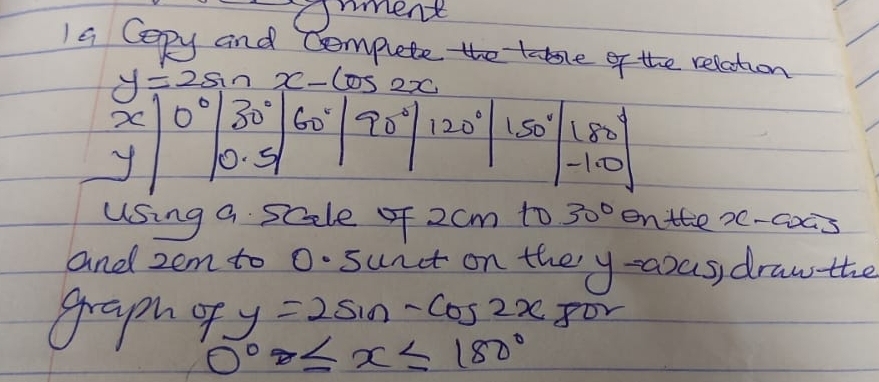 gnment
1a Copy and Complete the table of the relation
y = 2sin x - Cos 2x
x | 0° | 30° | 60° | 90° | 120° | 150° | 180°
y | | 0.5 | | | | | -1.0
Using a scale of 2cm to 30° on the x-axis
and 2cm to 0.5 unit on the y-axis, draw the
graph of y = 2sin - Cos 2x for
0° ≤ x ≤ 180°